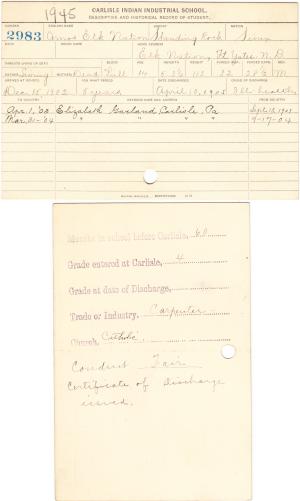 1945
CARLISLE INDIAN INDUSTRIAL SCHOOL.
DESCRIPTIVE AND HISTORICAL RECORD OF STUDENT.
NUMBER ENGLISH NAME AGENCY NATION
2983 Amos Elk Nation Standing Rock Sioux
BAND INDIAN NAME HOME ADDRESS
Elk Nation, Ft Yates N. D.
PARENTS LIVING OR DEAD BLOOD AGE HEIGHT WEIGHT FORCED INSP. FORCED EXPR. SEX
FATHER Living MOTHER Dead Full 14 112 M
ARRIVED AT SCHOOL FOR WHAT PERIOD DATE DISCHARGED CAUSE OF DISCHARGE
Dec 15, 1902 5 years April 10, 1905 Ill health
TO COUNTRY PATRONS NAME AND ADDRESS FROM COUNTRY
Apr. 1, '03 Elizabeth Garland Carlisle, Pa Sept. 1903
Mar. 31-'04 " " " 9-17-04
Months in school before Carlisle, 60
Grade entered at Carlisle, 4
Grade at date of Discharge,
Trade or Industry, Carpenter
Church, Catholic
Conduct Fair
Certificate of Discharge
issued.